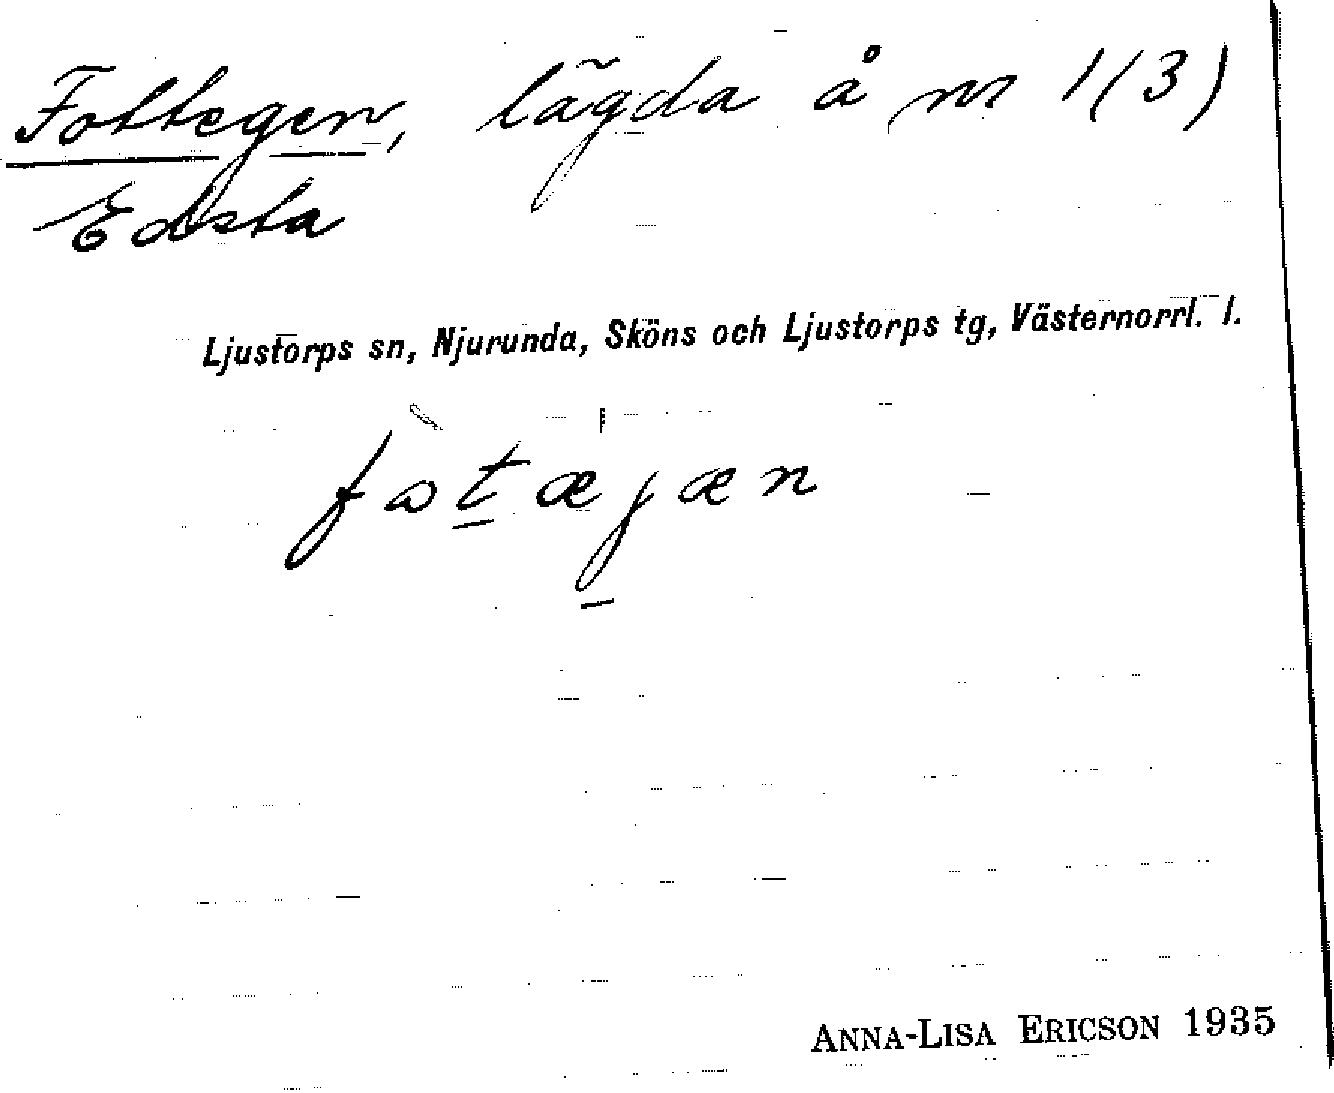 Fottegen, lägda å nr 1(3)
Edsta
Ljustorps sn, Njurunda, Sköns och Ljustorps tg, Västernorrl. l.
fɷ̀tæjæn
ANNA-LISA ERICSON 1935